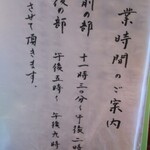 業時間のご案内
前の部
十一時三〇分〜午後二時
後の部
午後五時〜午後九時
させて頂きます。